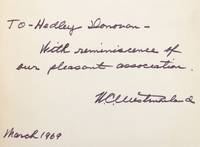 To - Hedley Donovan -
With reminiscence of
our pleasant association.
W.C. Westmoreland
March 1969